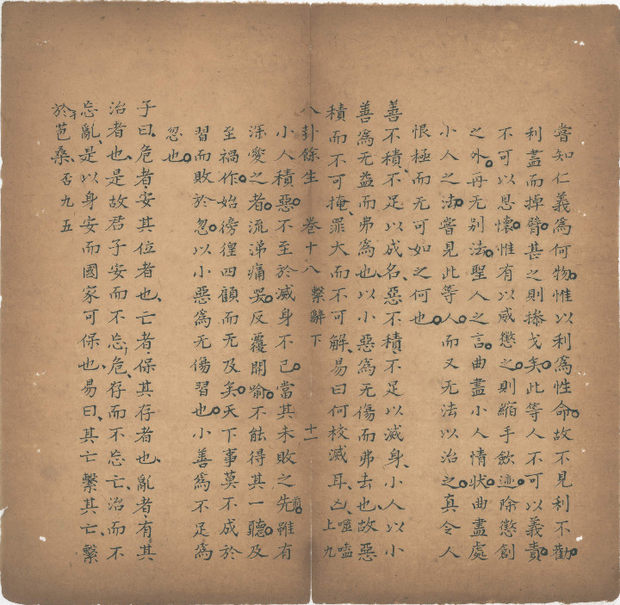 嘗知仁義爲何物惟以利爲性命故不見利不勸
利盡而掉臂甚之則捧戈矣此等人不可以義責
不可以恩懷惟有以威懲之則縮手飲迹除懲創
之外毋无别法聖人之言曲盡小人情狀曲盡處
小人之法嘗見此等人而又无法以治之真令人
恨極而无可如之何也
善不積不足以成名惡不積不足以滅身小人以小
善爲无益而弗爲也以小惡爲无傷而弗去也故惡
積而不可掩罪大而不可解易曰何校滅耳凶噬嗑上九
八卦餘生 卷十八 繫辭下 十一
小人積惡不至於滅身不已當其未敗之先雖有
深愛之者流涕痛哭反覆開喻不能得其一聽及
至禍作始徬徨四顧而无及矣天下事莫不成於
習而敗於忽以小惡爲无傷習也小善爲不足爲
忽也
子曰危者安其位者也亡者保其存者也亂者有其
治者也是故君子安而不忘危存而不忘亡治而不
忘亂是以身安而國家可保也易曰其亡其亡繫
於苞桑否九五